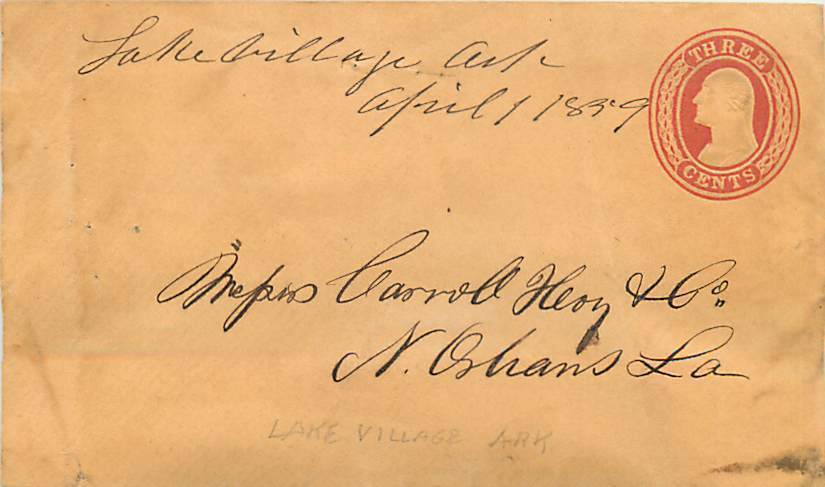 Lake Village Ark
April 1 1859
THREE
CENTS
Messrs Carroll Hoy & Co.
N. Orleans La
LAKE VILLAGE ARK